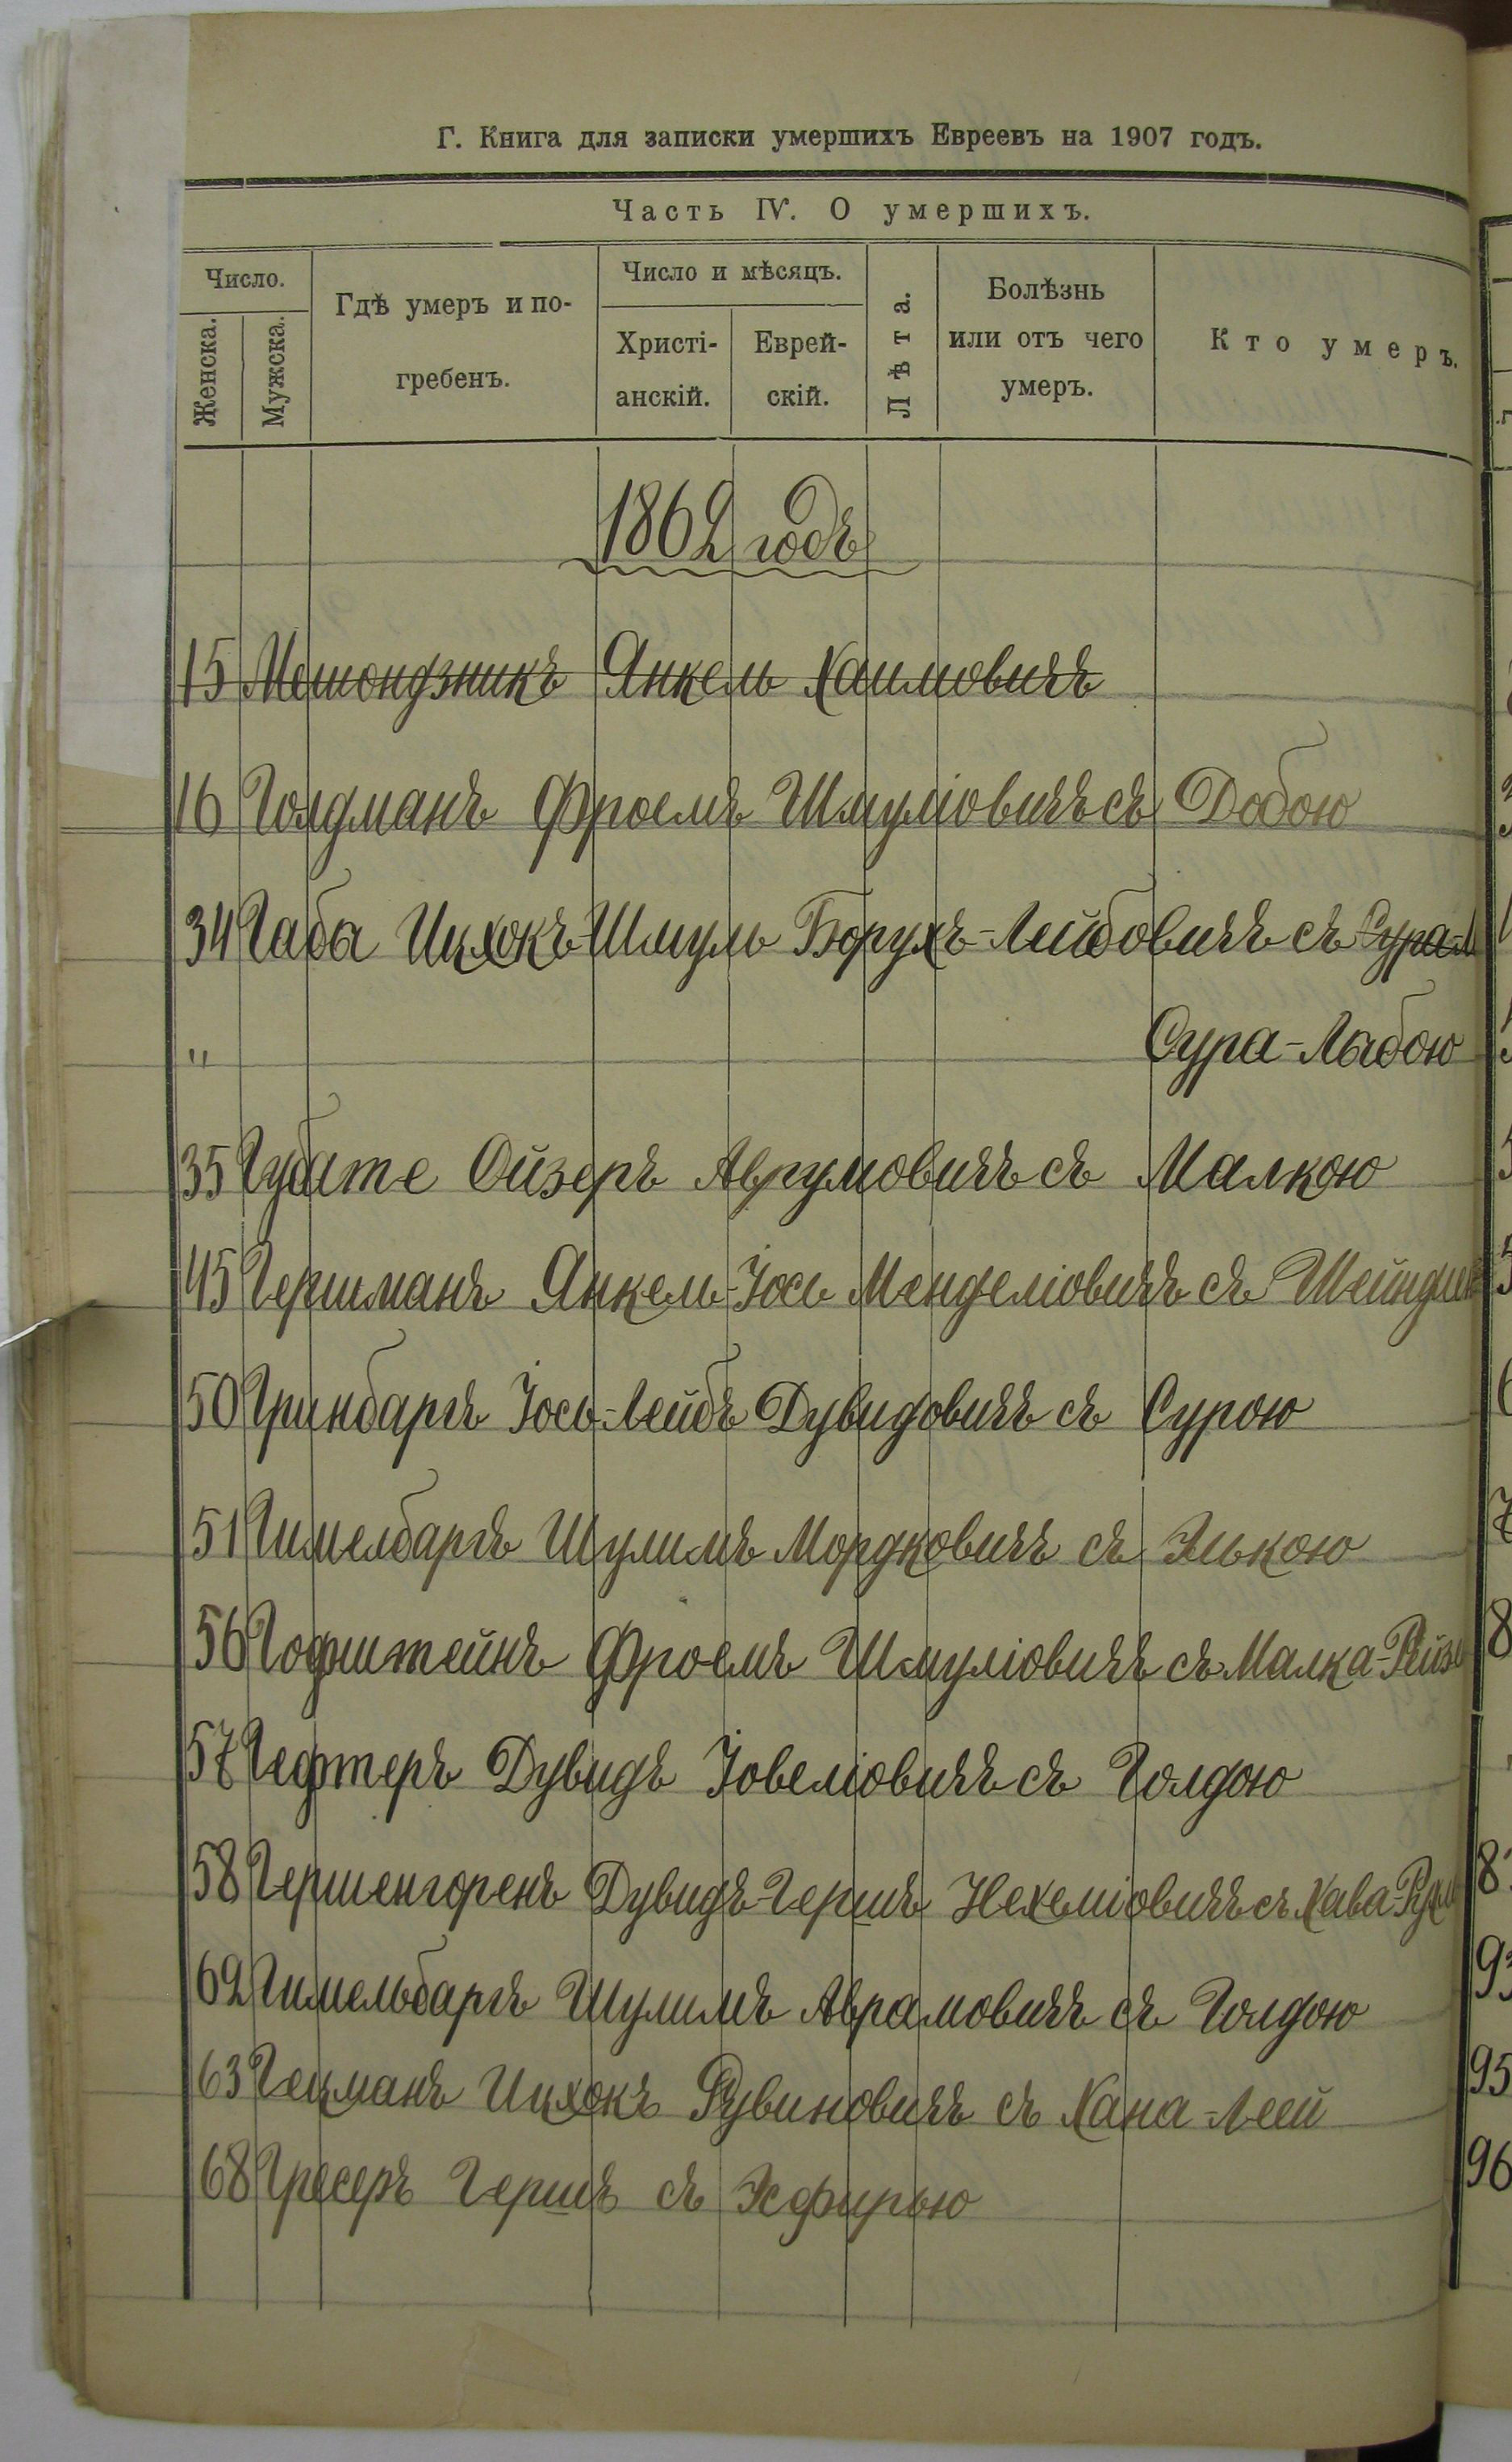 Г. Книга для записки умершихъ Евреевъ на 1907 годъ.
Часть IV. О умершихъ.
Число.
Женска.
Мужска.
Гдѣ умеръ и по-
гребенъ.
Число и мѣсяцъ.
Христі-
анскій.
Еврей-
скій.
Лѣта.
Болѣзнь
или отъ чего
умеръ.
Кто умеръ.
1862 годъ
15 Янкель Хаимовичъ
16 Голдманъ Фроемъ Шмуліовичъ съ Добою
34 Габа Ицхокъ-Шмуль Борухъ-Лейбовичъ съ Сура-Л
" Сура-Лыбою
35 Губате Ойзеръ Аврумовичъ съ Малкою
45 Гершманъ Янкель-Іось Менделіовичъ съ
50 Гринбаргъ Іось-Лейбъ Дувидовичъ съ Сурою
51 Гимелбаргъ Шулимъ Мордковичъ съ Элькою
56 Гофштейнъ Фроемъ Шмуліовичъ съ Малка-Рейзе
57 Гефтеръ Дувидъ Іовеліовичъ съ Голдою
58 Гершенгоренъ Дувидъ-Гершъ Нехеміовичъ съ Хава-
62 Гимельбаргъ Шулимъ Аврамовичъ съ Голдою
63 Гецманъ Ицхокъ Рувиновичъ съ Хана-Леей
68 Гресеръ Гершъ съ Эсфирью
95
96